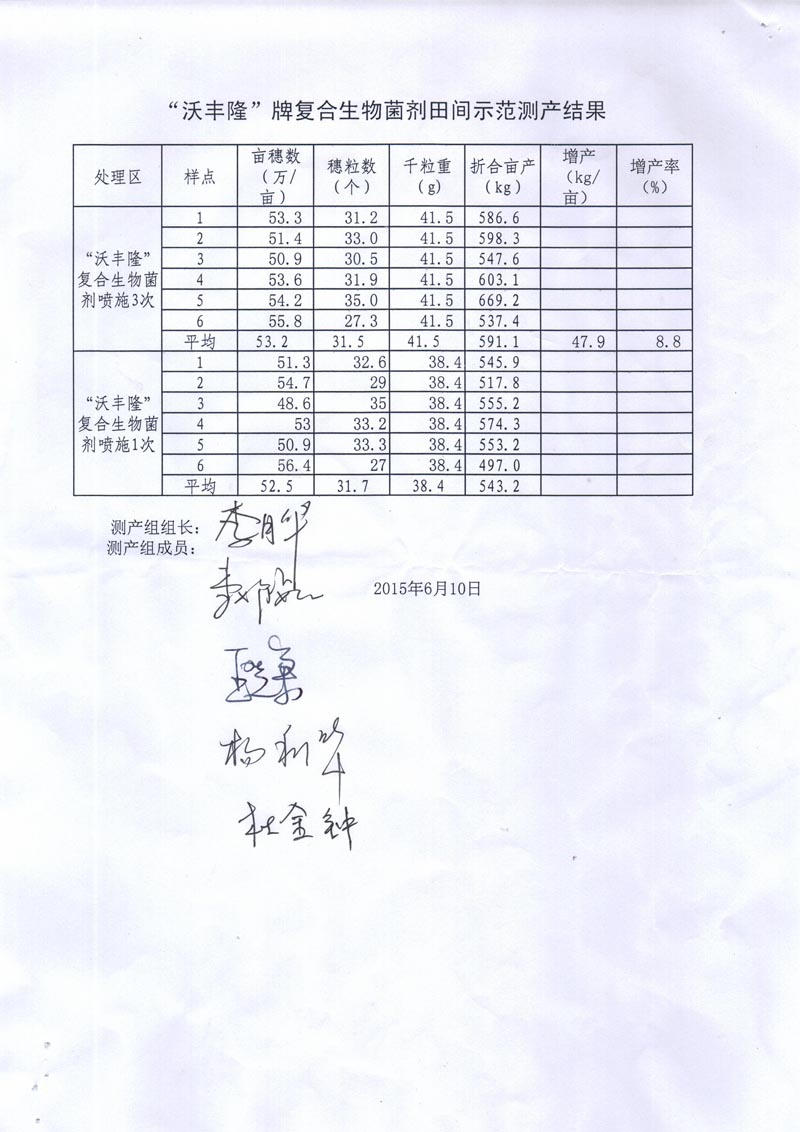 “沃丰隆”牌复合生物菌剂田间示范测产结果
处理区 样点 亩穗数（万/亩） 穗粒数（个） 千粒重(g) 折合亩产（kg） 增产（kg/亩） 增产率（%）
“沃丰隆”复合生物菌剂喷施3次
1 53.3 31.2 41.5 586.6
2 51.4 33.0 41.5 598.3
3 50.9 30.5 41.5 547.6
4 53.6 31.9 41.5 603.1
5 54.2 35.0 41.5 669.2
6 55.8 27.3 41.5 537.4
平均 53.2 31.5 41.5 591.1 47.9 8.8
“沃丰隆”复合生物菌剂喷施1次
1 51.3 32.6 38.4 545.9
2 54.7 29 38.4 517.8
3 48.6 35 38.4 555.2
4 53 33.2 38.4 574.3
5 50.9 33.3 38.4 553.2
6 56.4 27 38.4 497.0
平均 52.5 31.7 38.4 543.2
测产组组长： 李月华
测产组成员：
2015年6月10日
杨利华
杜金钟